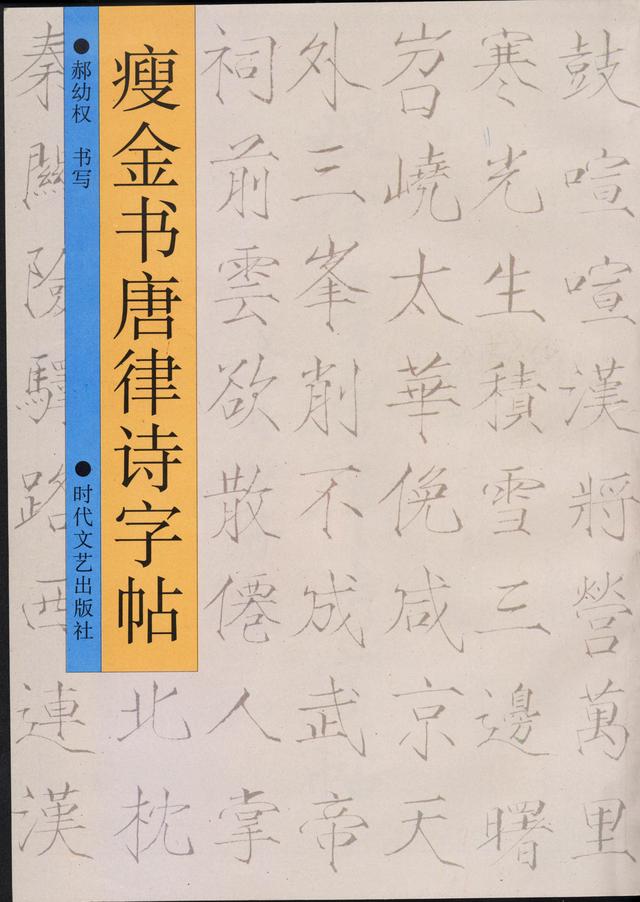 瘦金书唐律诗字帖
●郝幼权 书写
●时代文艺出版社
鼓喧喧漢將營萬里
寒光生積雪三邊曙
岧嶢太華俛咸京天
外三峯削不成武帝
祠前雲欲散僊人掌
北枕
秦關險驛路西連漢